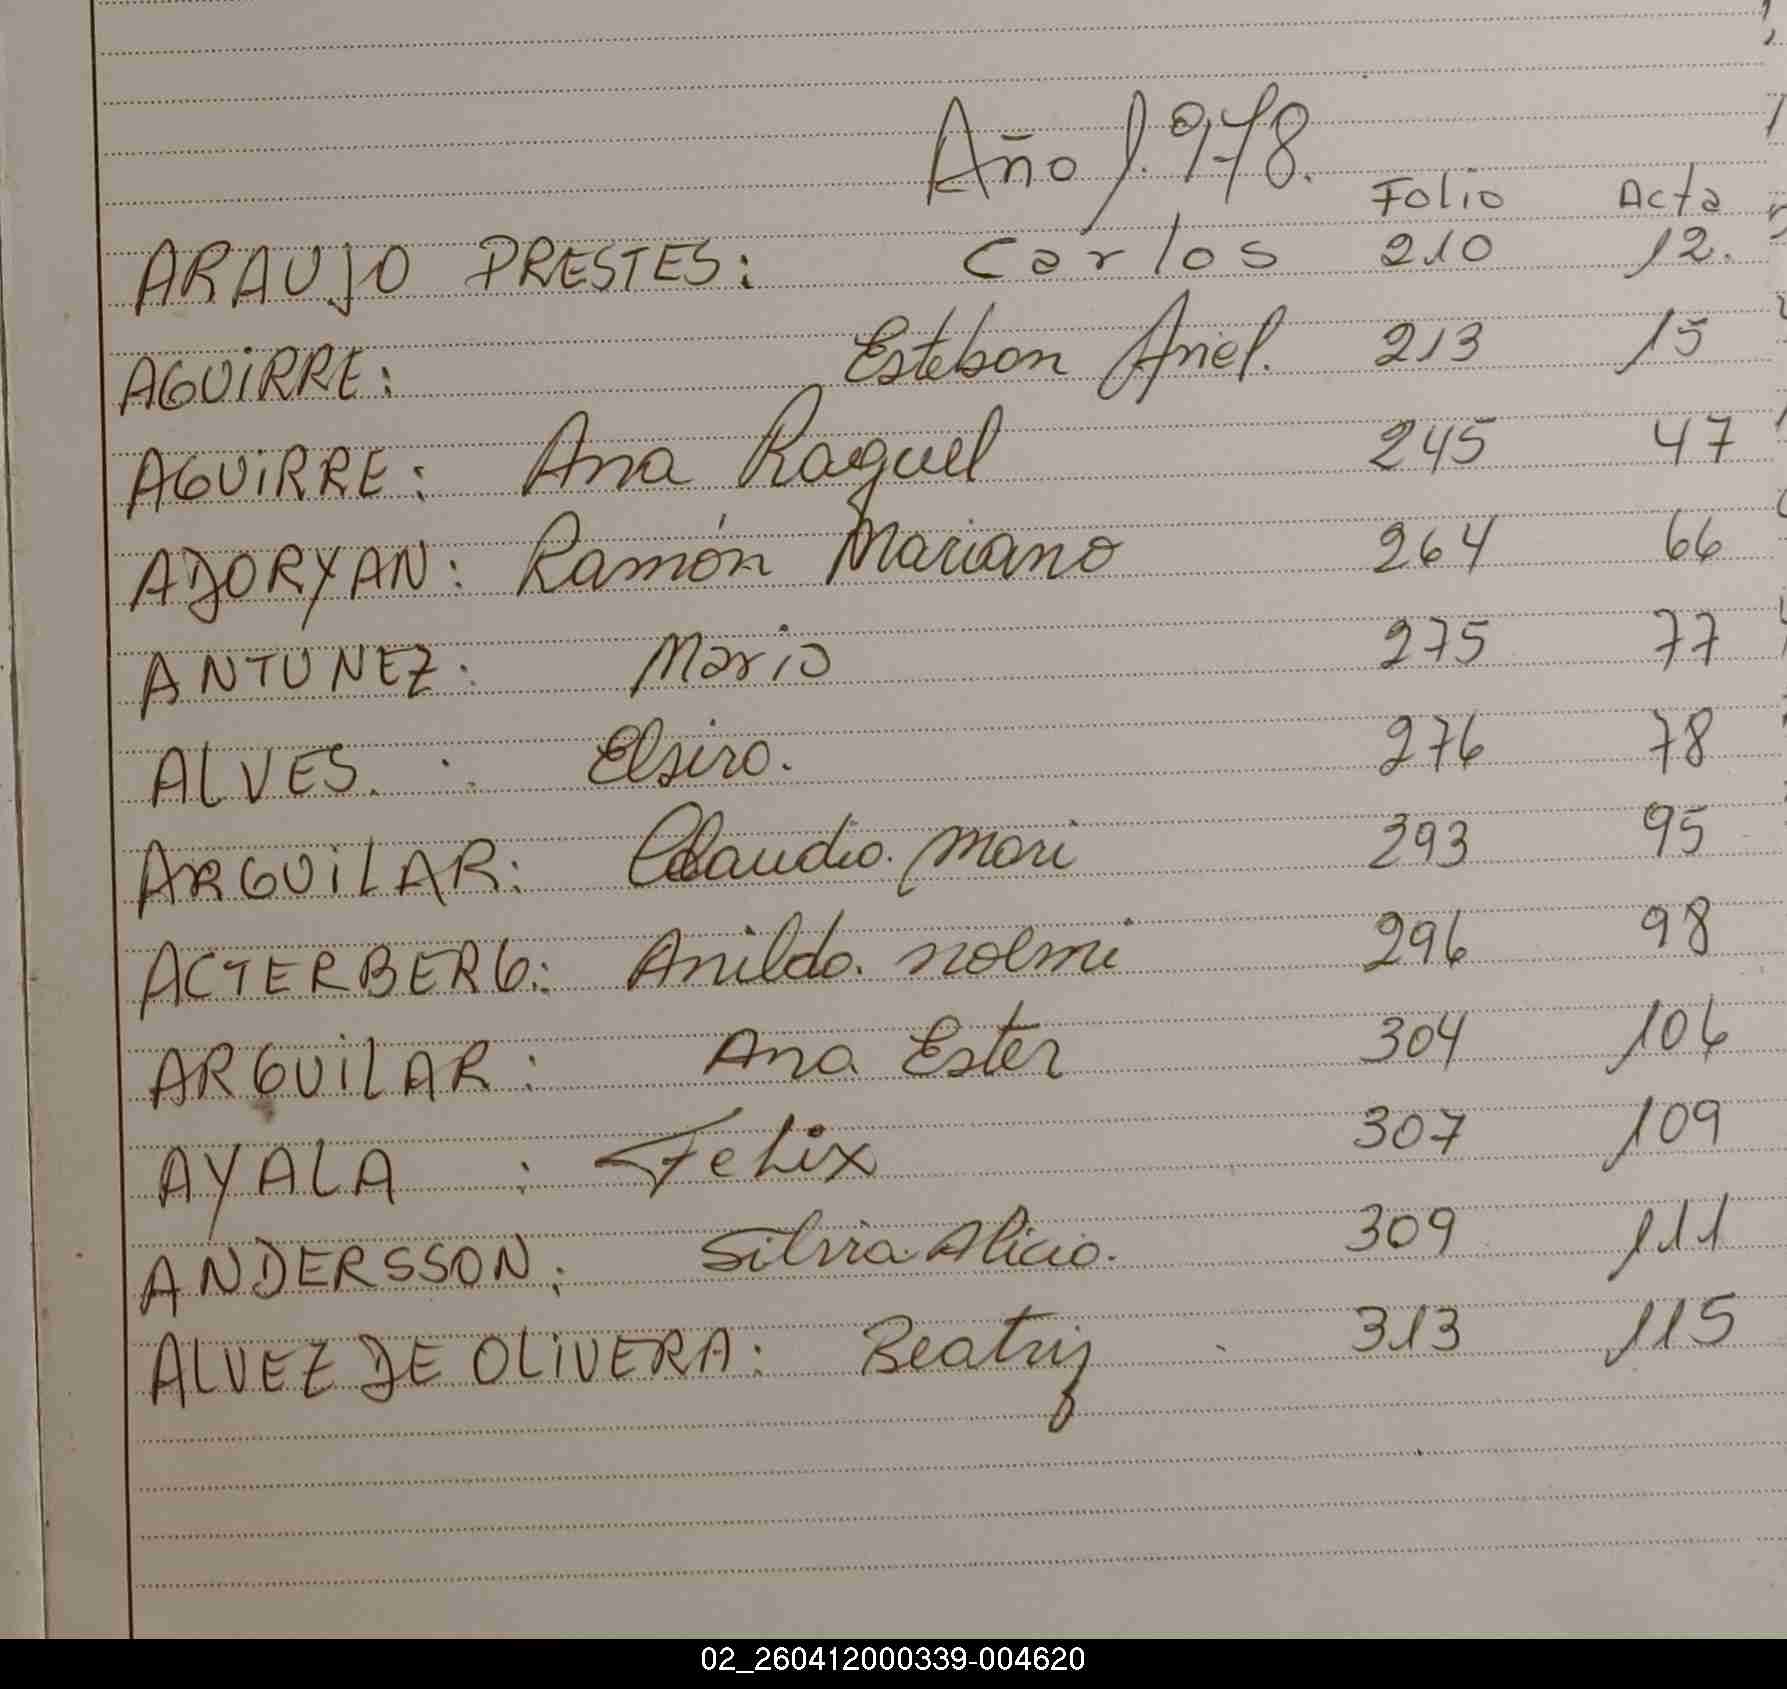 Año 1.978.
Folio Acta
ARAUJO PRESTES: Carlos 210 12.
AGUiRRE: Esteban Ariel. 213 15
AGUiRRE: Ana Raquel 245 47
ADORYAN: Ramón Mariano 264 66
ANTUNEZ: Mario 275 77
ALVES. : Elsiro. 276 78
ARGUiLAR: Claudio. Mari 293 95
ACTERBERG: Anildo. noemi 296 98
ARGUiLAR: Ana Ester 304 106
AYALA : Felix 307 109
ANDERSSON: Silvia Alicia. 309 111
ALVEZ DE OLiVERA: Beatriz 313 115
02_260412000339-004620